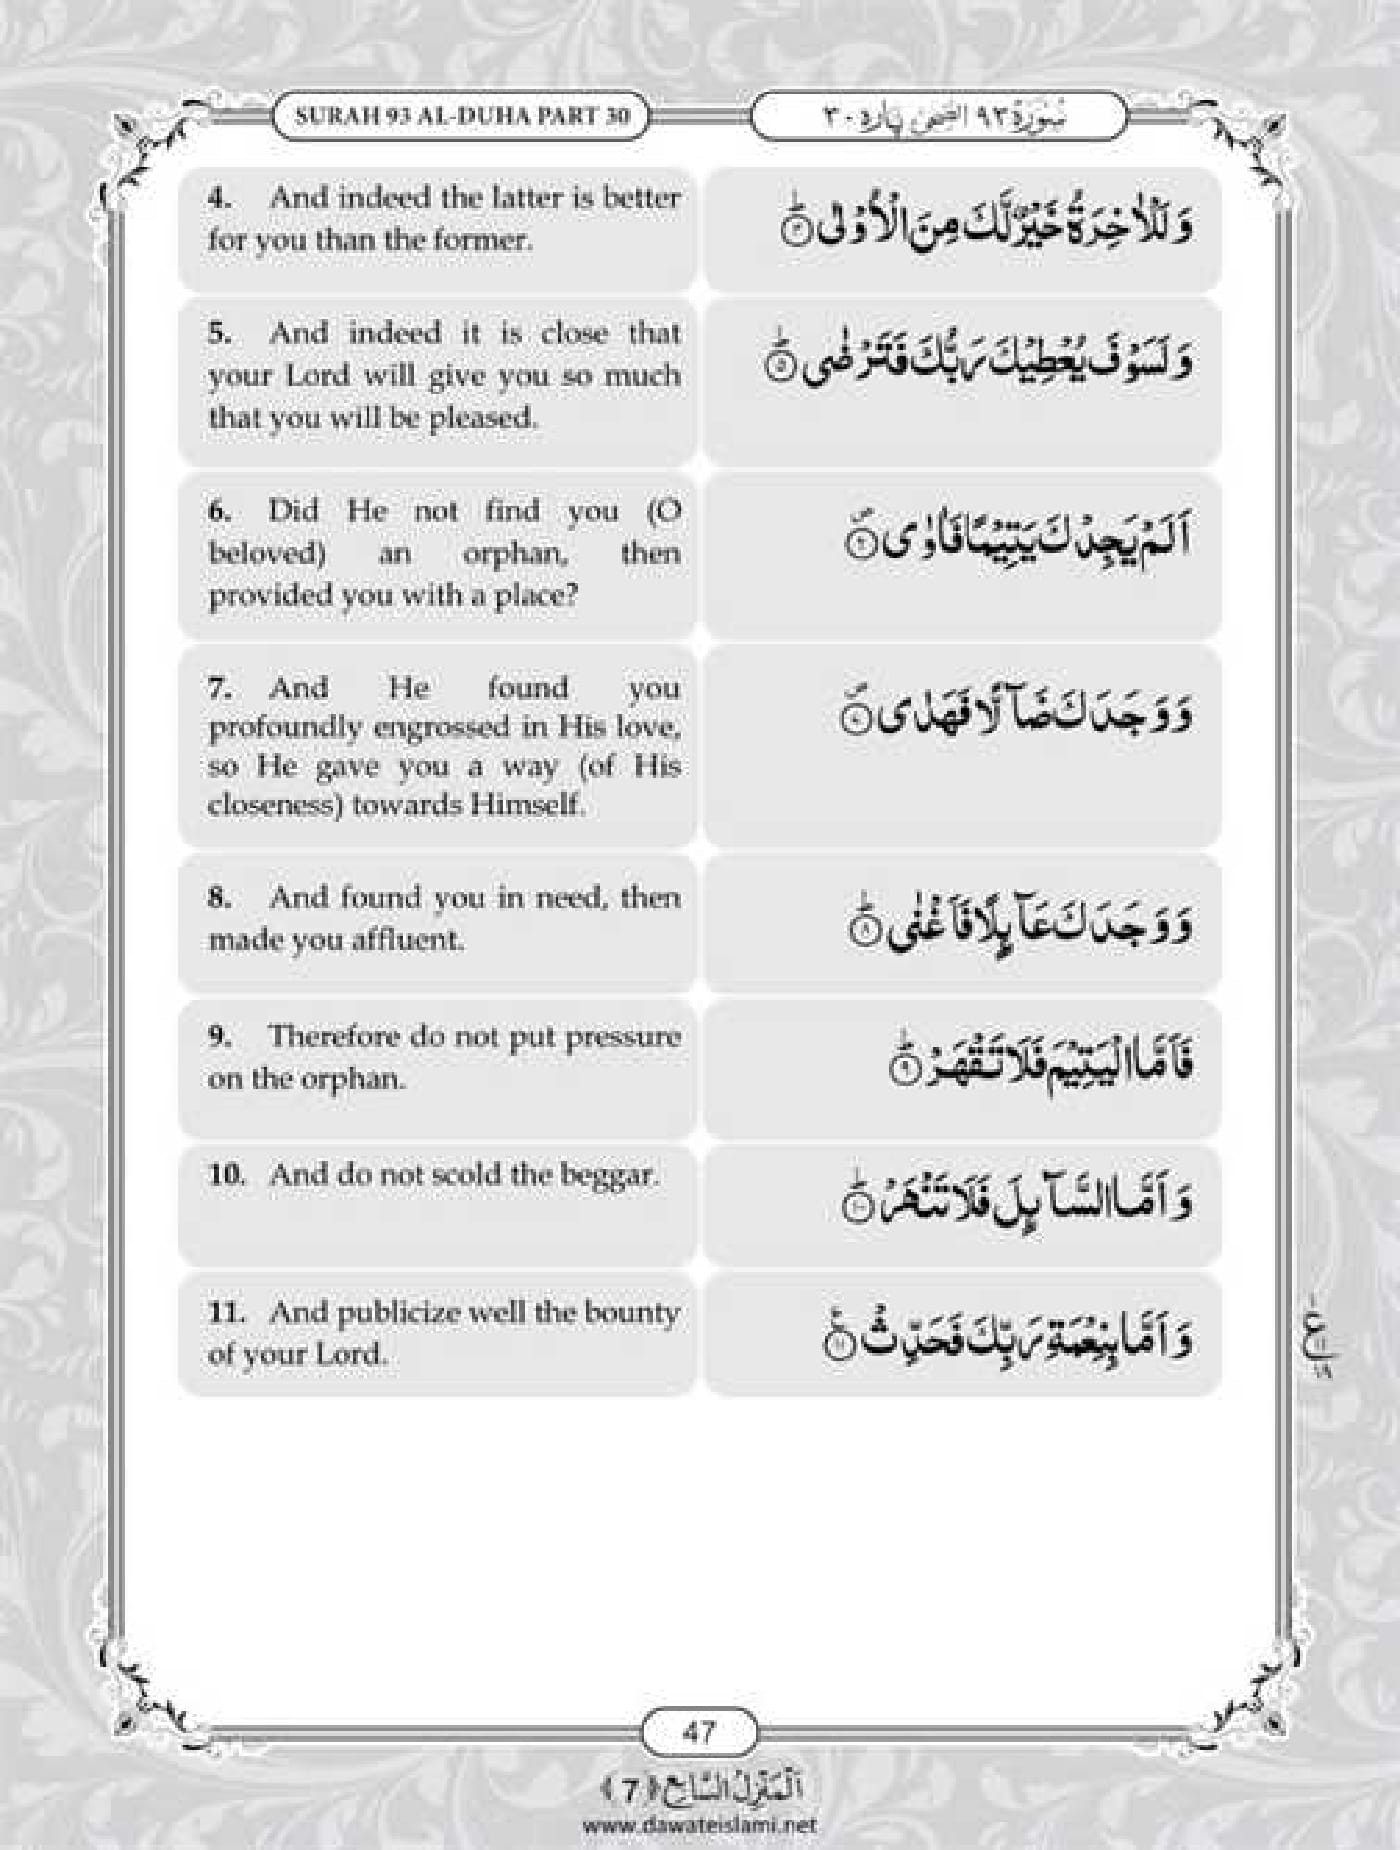 SURAH 93 AL-DUHA PART 30
سُوْرَةُ ٩٣ الضحی پاره ٣٠
4. And indeed the latter is better
for you than the former.
وَ لَلْاٰخِرَةُ خَیْرٌ لَّكَ مِنَ الْاُوْلٰیؕ۝۴
5. And indeed it is close that
your Lord will give you so much
that you will be pleased.
وَ لَسَوْفَ یُعْطِیْكَ رَبُّكَ فَتَرْضٰیؕ۝۵
6. Did He not find you (O
beloved) an orphan, then
provided you with a place?
اَلَمْ یَجِدْكَ یَتِیْمًا فَاٰوٰی۪۝۶
7. And He found you
profoundly engrossed in His love,
so He gave you a way (of His
closeness) towards Himself.
وَ وَجَدَكَ ضَآلًّا فَهَدٰی۪۝۷
8. And found you in need, then
made you affluent.
وَ وَجَدَكَ عَآىِٕلًا فَاَغْنٰیؕ۝۸
9. Therefore do not put pressure
on the orphan.
فَاَمَّا الْیَتِیْمَ فَلَا تَقْهَرْؕ۝۹
10. And do not scold the beggar.
وَ اَمَّا السَّآىِٕلَ فَلَا تَنْهَرْؕ۝۱۰
11. And publicize well the bounty
of your Lord.
وَ اَمَّا بِنِعْمَةِ رَبِّكَ فَحَدِّثْ۠۝۱۱
ع
١١
١٨
47
اَلْمَنْزِلُ السَّابِع ﴿7﴾
www.dawateislami.net